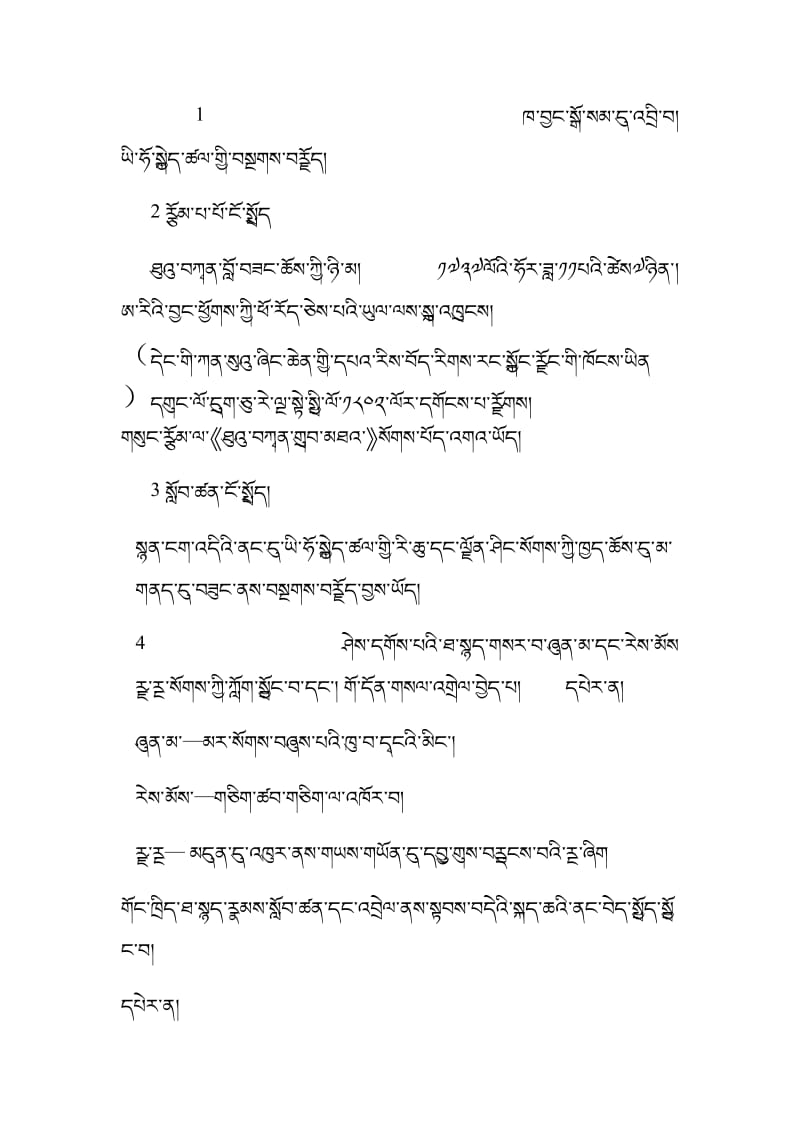 1 ཁ་བྱང་སྒོ་སམ་དུ་འབྲི་བ།
ཡི་ཧོ་སྐྱེད་ཚལ་གྱི་བསྔགས་བརྗོད།
2 རྩོམ་པ་པོ་ངོ་སྤྲོད
ཐུའུ་བཀྭན་བློ་བཟང་ཆོས་ཀྱི་ཉི་མ། ༡༧༣༧ལོའི་ཧོར་ཟླ་༡༡པའི་ཚེས༧ཉིན་།
ཨ་རིའི་བྱང་ཕྱོགས་ཀྱི་ཕོ་རོད་ཅེས་པའི་ཡུལ་ལས་སྐུ་འཁྲུངས།
（དེང་གི་ཀན་སུའུ་ཞིང་ཆེན་གྱི་དཔའ་རིས་བོད་རིགས་རང་སྐྱོང་རྫོང་གི་ཁོངས་ཡིན
） དགུང་ལོ་དྲུག་ཅུ་རེ་ལྔ་སྟེ་སྤྱི་ལོ་༡༨༠༢་ལོར་དགོངས་པ་རྫོགས།
གསུང་རྩོམ་ལ་《ཐུའུ་བཀྭན་གྲུབ་མཐའ་》སོགས་པོད་འགའ་ཡོད།
3 སློབ་ཚན་ངོ་སྤྲོད།
སྙན་ངག་འདིའི་ནང་དུ་ཡི་ཧོ་སྐྱེད་ཚལ་གྱི་རི་ཆུ་དང་ལྗོན་ཤིང་སོགས་ཀྱི་ཁྱད་ཆོས་དུ་མ་
གནད་དུ་བཟུང་ནས་བསྔགས་བརྗོད་བྱས་ཡོད།
4 ཤེས་དགོས་པའི་ཐ་སྙད་གསར་བ་ཞུན་མ་དང་རེས་མོས
རྫ་རྔ་སོགས་ཀྱི་ཀློག་སྦྱོང་བ་དང་། གོ་དོན་གསལ་འགྲེལ་བྱེད་པ། དཔེར་ན།
ཞུན་མ་—མར་སོགས་བཞུས་པའི་ཁུ་བ་དྭངའི་མིང་།
རེས་མོས་—གཅིག་ཚབ་གཅིག་ལ་འཁོར་བ།
རྫ་རྔ— མདུན་དུ་འཁུར་ནས་གཡས་གཡོན་དུ་དབྱུ་གུས་བརྡུངས་བའི་རྔ་ཞིག
གོང་ཁྲིད་ཐ་སྙད་རྣམས་སློབ་ཚན་དང་འབྲེལ་ནས་སྟབས་བདེའི་སྐད་ཆའི་ནང་བེད་སྤྱོད་སྦྱོ
ང་བ།
དཔེར་ན།